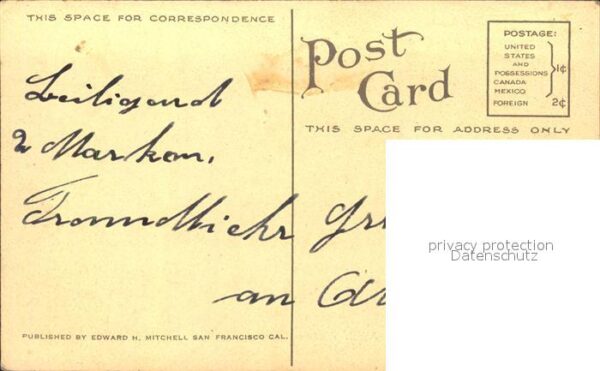 THIS SPACE FOR CORRESPONDENCE
Post Card
POSTAGE:
UNITED STATES AND POSSESSIONS CANADA MEXICO 1¢
FOREIGN 2¢
THIS SPACE FOR ADDRESS ONLY
Beiligend
2 Marken.
an
privacy protection
Datenschutz
PUBLISHED BY EDWARD H. MITCHELL SAN FRANCISCO CAL.